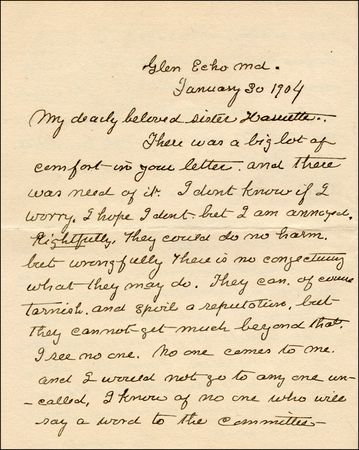 Glen Echo Md.
January 30 1904
My dearly beloved sister Harriette..
There was a big lot of
comfort in your letter. and there
was need of it. I dont know if I
worry, I hope I dont. but I am annoyed.
Rightfully, They could do no harm.
but wrongfully There is no conjecturing
what they may do. They can. of course
tarnish. and spoil a reputation, but
They cannot get much beyond that.
I see no one. No one comes to me.
and I would not go to any one un-
-called, I know of no one who will
say a word to the committee-